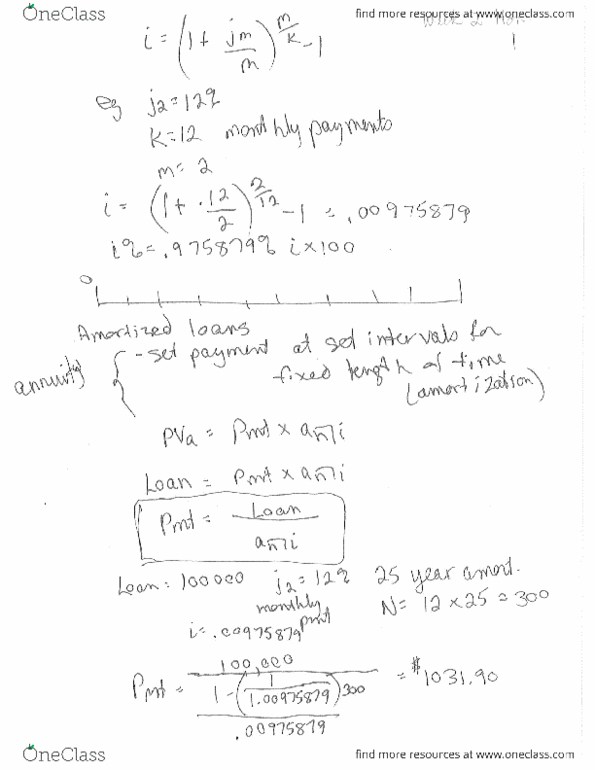 OneClass
find more resources at www.oneclass.com
1
i = (1 + jm/m)^(m/k) - 1
eg j2 = 12%
K = 12 monthly payments
m = 2
i = (1 + .12/2)^(2/12) - 1 = .00975879
i% = .975879% i x 100
0
Amortized loans
annuity { - set payment at set intervals for
fixed length of time
(amortization)
PVa = Pmt x an⌉i
Loan = Pmt x an⌉i
Pmt = Loan / an⌉i
Loan = 100 000 j2 = 12% 25 year amort.
monthly pmt N = 12 x 25 = 300
i = .00975879
Pmt = 100,000 / ((1 - (1/1.00975879)^300) / .00975879) = $1031.90
OneClass
find more resources at www.oneclass.com